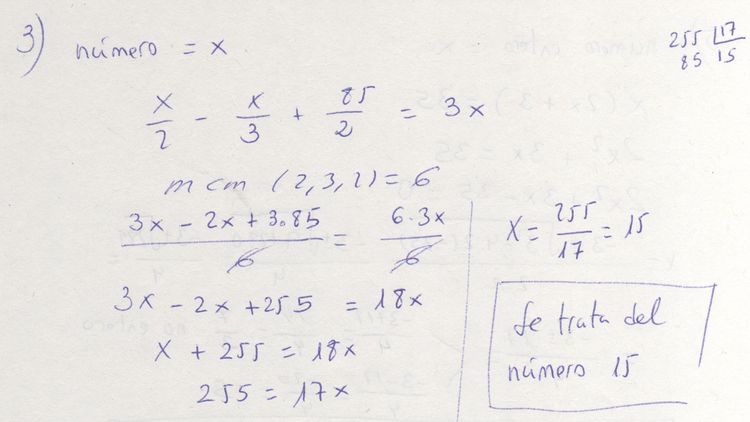 3) número = x
255 | 17
85 15
x/2 - x/3 + 85/2 = 3x
mcm (2,3,2) = 6
(3x - 2x + 3·85)/6 = (6·3x)/6
3x - 2x + 255 = 18x
x + 255 = 18x
255 = 17x
x = 255/17 = 15
Se trata del
número 15